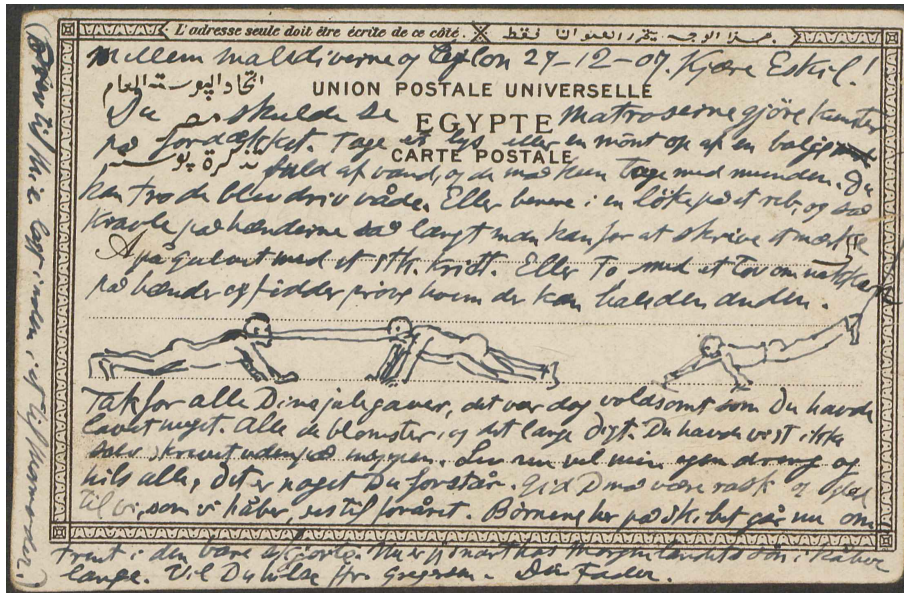 L'adresse seule doit être écrite de ce côté.
هذا الوجه يحرر العنوان فقط
Mellem Maldiverne og Ceylon 27-12-07. Kjære Eskil!
اتحاد البوسته العام
UNION POSTALE UNIVERSELLE
Du skulde se Matroserne gjöre kunster
مصر
EGYPTE
på fordækket. Tage et lys eller en mönt op af en balje
تذكرة بوسته
CARTE POSTALE
fuld af vand, og de må kun tage med munden. Du
kan tro de blev drivvåde. Eller benene i en lökke på et reb, og så
kravle på hænderne så langt man kan for at skrive et mærke
på gulvet med et stk. kridt. Eller To med et Tov om nakken
på hænder og fødder prøve hvem der kan hale den anden.
Tak for alle Dine julegaver, det var dog voldsomt som Du havde
lavet meget. Alle de blomster, og det lange digt. Du havde vist ikke
selv skrevet udenpå mappen. Lev nu vel min egen dreng og
hils alle, Det er noget Du forstår. Gid Du må være rask og glad
til vi, som vi håber, ses til foråret. Börnene her på sk. bet går nu om
trent i den bare skjorte. Nu er jo snart
længe. Vil Du hilse Hr. Din Fader.